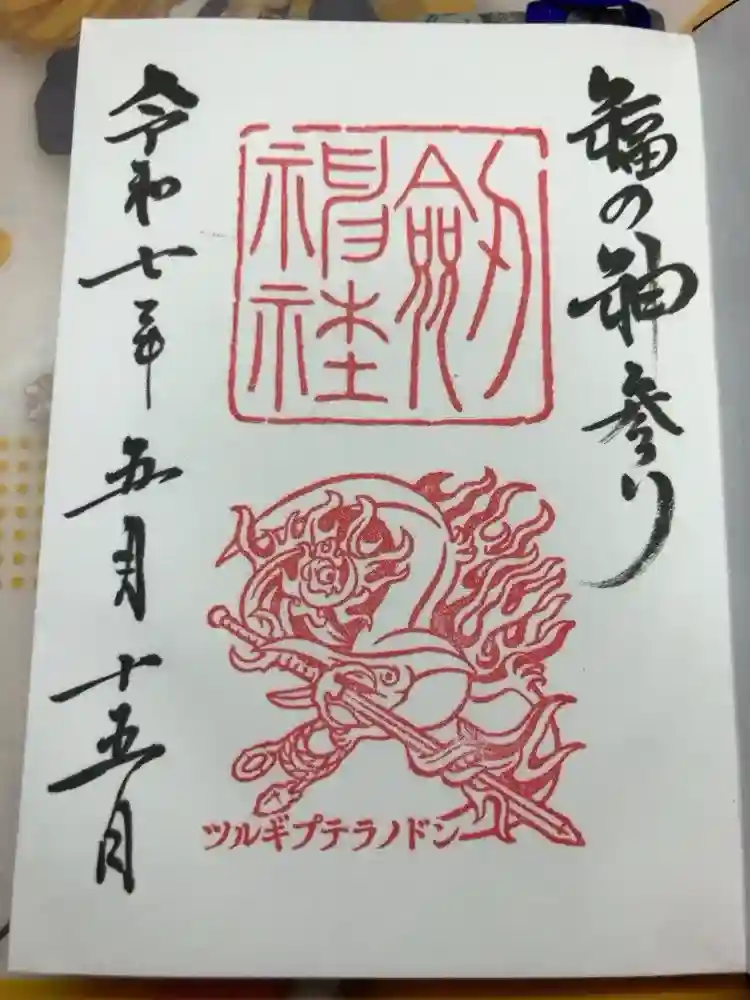 福の神参り
劔神社
ツルギプテラノドン
令和七年 五月 十五日